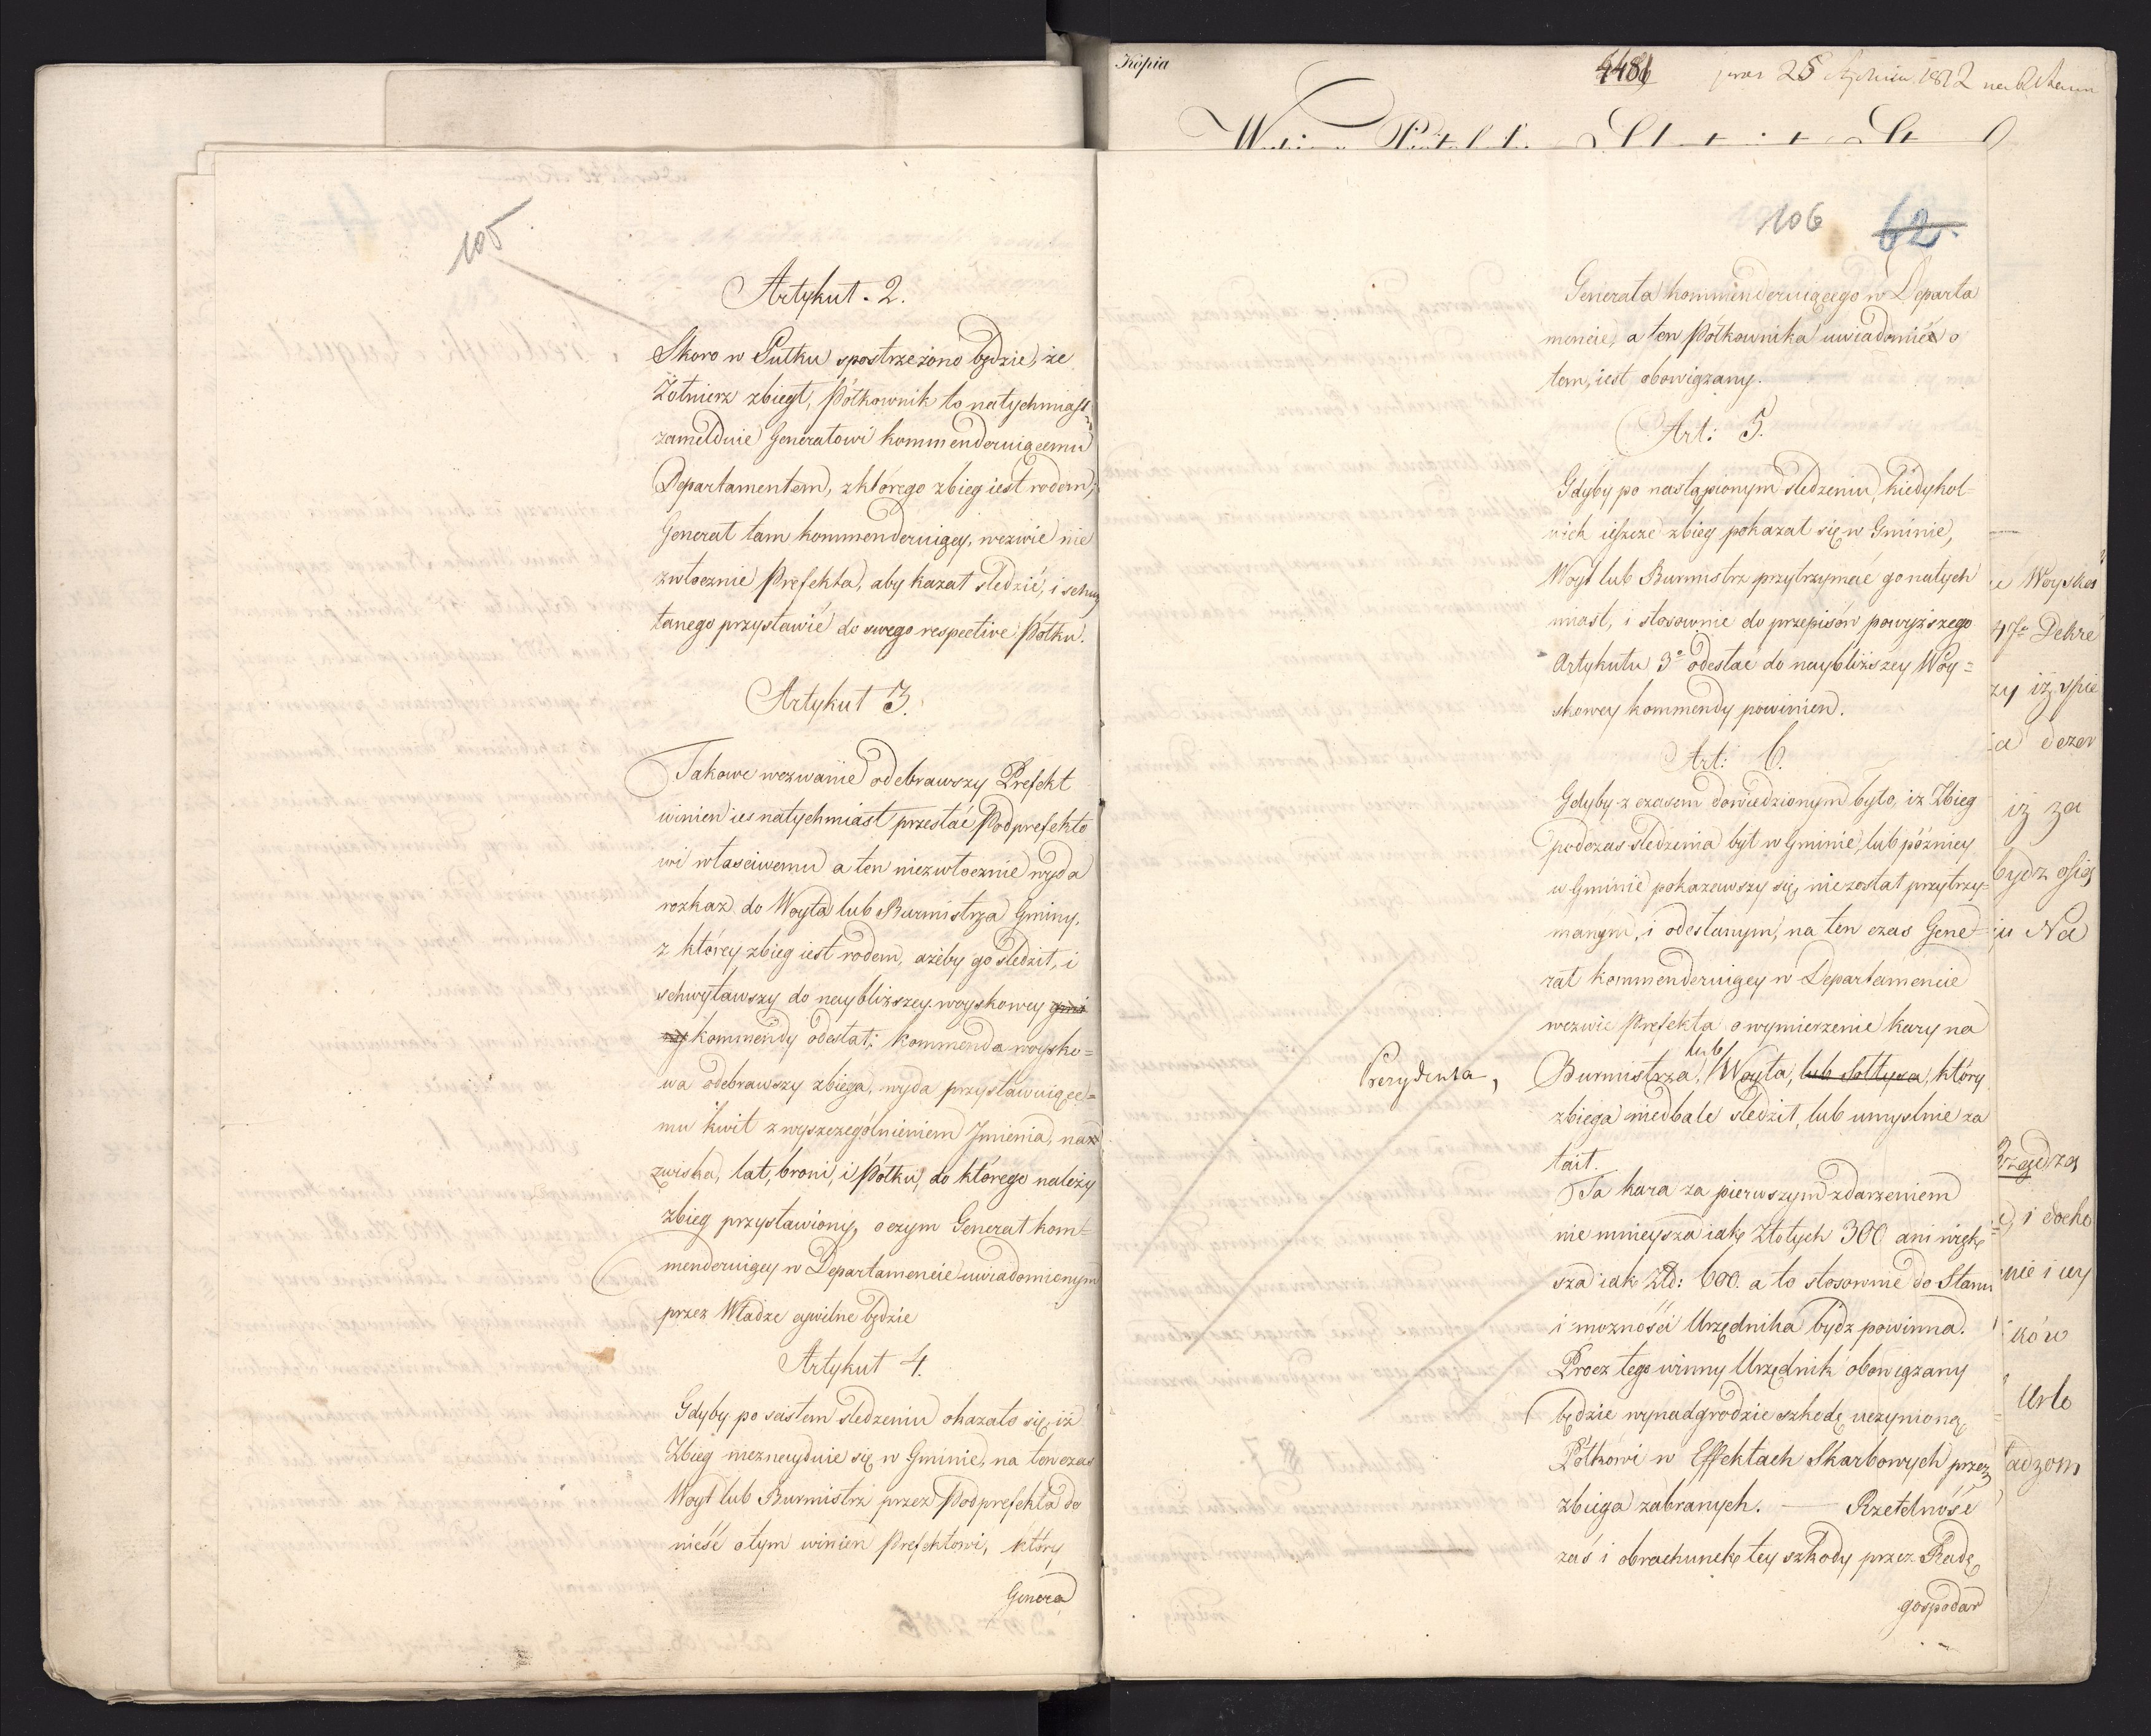 105
Artykuł. 2.
Skoro w Pułku spostrzeżono będzie, że
Żołnierz zbiegł, Półkownik to natychmiast
zamelduie Generałowi kommenderuiącemu
Departamentem, z którego zbieg iest rodem,
Generał tam kommenderuiący, wezwie nie
zwłocznie Prefekta, aby kazał sledzić, i schwy
tanego przystawić do swego respective Półku.
Artykuł 3.
Takowe wezwanie odebrawszy Prefekt
winien ies natychmiast przesłać Podprefekto
wi właściwemu a ten niezwłocznie wyda
rozkaz do Woyta lub Burmistrza Gminy,
z którey zbieg iest rodem, ażeby go sledził, i
schwytawszy do naybliższey woyskowey gmi
ny kommendy odesłał; kommenda woysko=
wa odebrawszy zbiega, wyda przystawuiące=
mu kwit z wyszczególnieniem Jmienia, naz
zwiska, lat, broni, i Półku, do którego należy
zbieg przystawiony, o czym Generał kom=
menderuiący w Departamencie uwiadomionym
przez Władze cywilne będzie
Artykuł 4.
Gdyby po scistem sledzeniu okazało się, iż
Zbieg nieznayduie się w Gminie, na tenczas
Woyt lub Burmistrz przez Podprefekta do
nieść o tym winien Prefektowi, który
Genera
Kopia
4486
25 1812
106 62.
Generała kommenderuiącego w Departa
mencie, a ten Półkownika uwiadomić o
tem, iest obowiązany.
Art: 5.
Gdyby po nastąpionym sledzeniu, kiedykol=
wiek ieszcze zbieg pokazał się w Gminie,
Woyt lub Burmistrz przytrzymać go natych
miast, i stosownie do przepisów powyższego
Artykułu 3º odesłać do naybliższey Woy=
skowey kommendy powinien.
Art: 6.
Gdyby z czasem dowiedzionym było, iż Zbieg
podczas sledzenia był w Gminie, lub pózniey
w Gminie pokazawszy się, niezostał przytrzy=
manym, i odesłanym, na ten czas Gene=
rał kommenderuiący w Departamencie
wezwie Prefekta o wymierzenie kary na
Prezydenta,
lub
Burmistrza, Woyta, lub Sołtysa, który
zbiega niedbale sledził, lub umyslnie za
taił.
Ta kara za pierwszym zdarzeniem
nie mnieysza iak Złotych 300 ani więk
sza iak Złł: 600. a to stosownie do Stanu
i możnosci Urzędnika bydz powinna.
Procz tego winny Urzędnik obowiązany
będzie wynadgrodzic szkodę uczynioną
Półkowi w Effektach Skarbowych przez
zbiega zabranych. — Rzetelność
zaś i obrachunek tey szkody przez Radę
gospodar
Woyska
47º Dekre
zy iż spie
iż za
bydz
iu Na
i docho
ków
Urlo
adzom